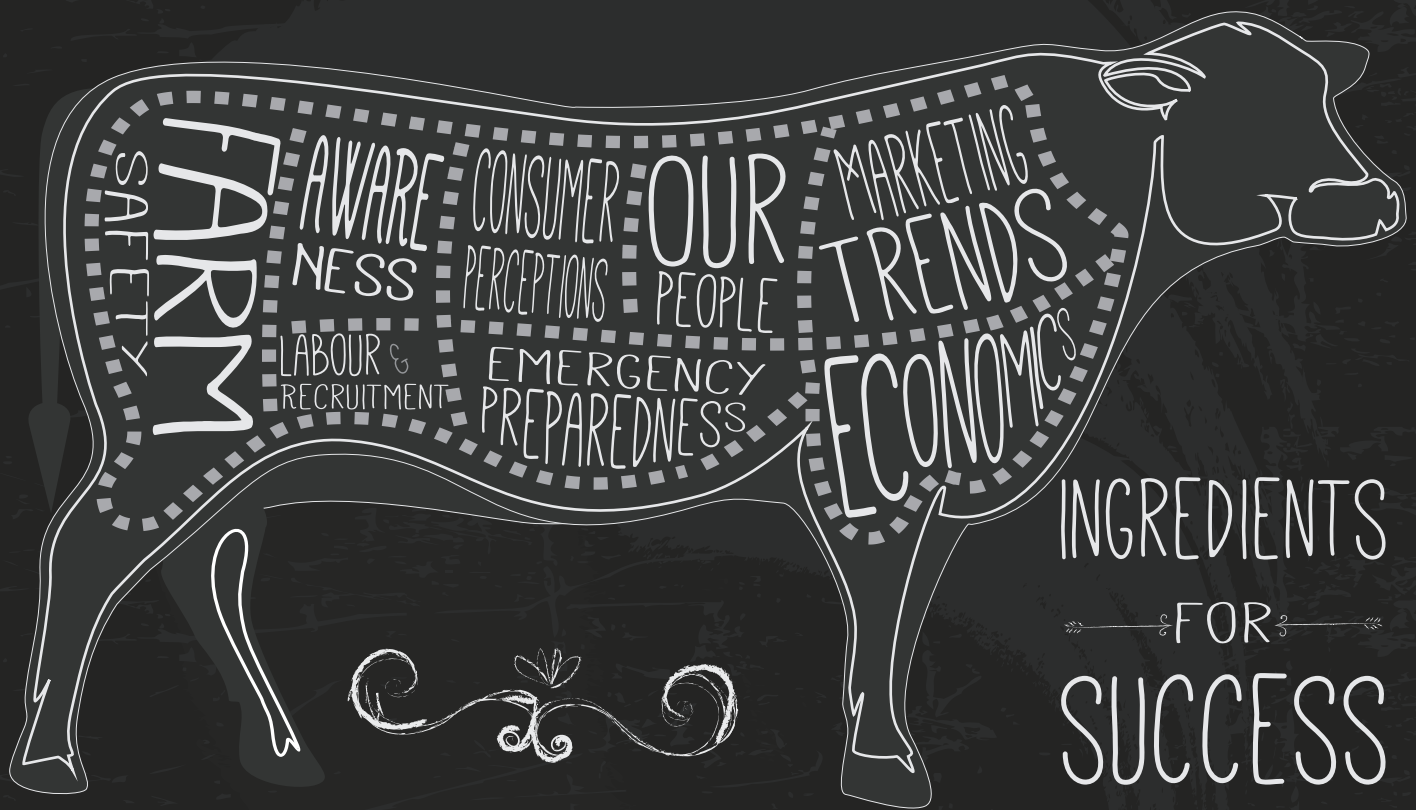 FARM
SAFETY
AWARE
NESS
LABOUR &
RECRUITMENT
CONSUMER
PERCEPTIONS
OUR
PEOPLE
EMERGENCY
PREPAREDNESS
MARKETING
TRENDS
ECONOMICS
INGREDIENTS
FOR
SUCCESS